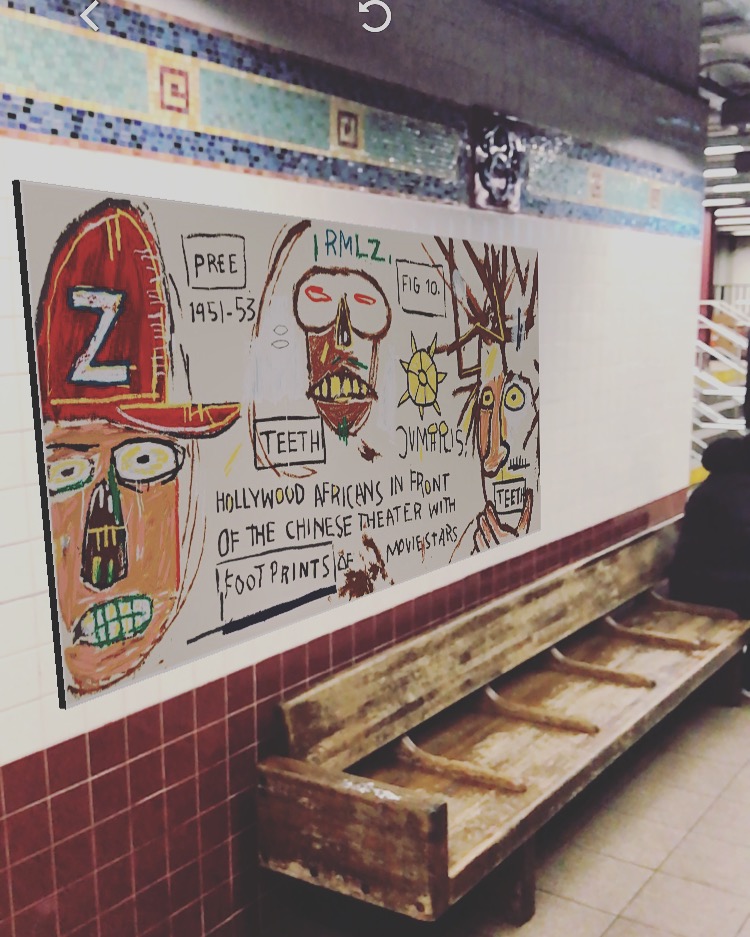 Z
PREE
1951-53
RMLZ.
FIG 10.
TEETH
HOLLYWOOD AFRICANS IN FRONT
OF THE CHINESE THEATER WITH
FOOTPRINTS OF MOVIE STARS
TEETH